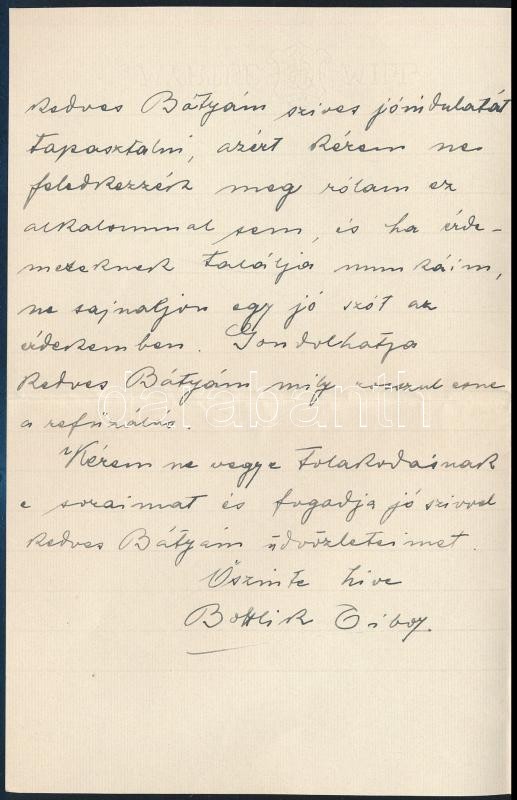 kedves Bátyám szives jóindulatát
tapasztalni, azért kérem ne
feledkezzék meg rólam ez
alkalommal sem, és ha érde-
meseknek találja munkáim,
ne sajnáljon egy jó szót az
érdekemben. Gondolhatja
kedves Bátyám mily rosszul esne
a refüzálás.
Kérem ne vegye tolakodásnak
e soraimat és fogadja jó szivvel
kedves Bátyám üdvözleteimet.
Őszinte hive
Bottlik Tibor.
darabanth